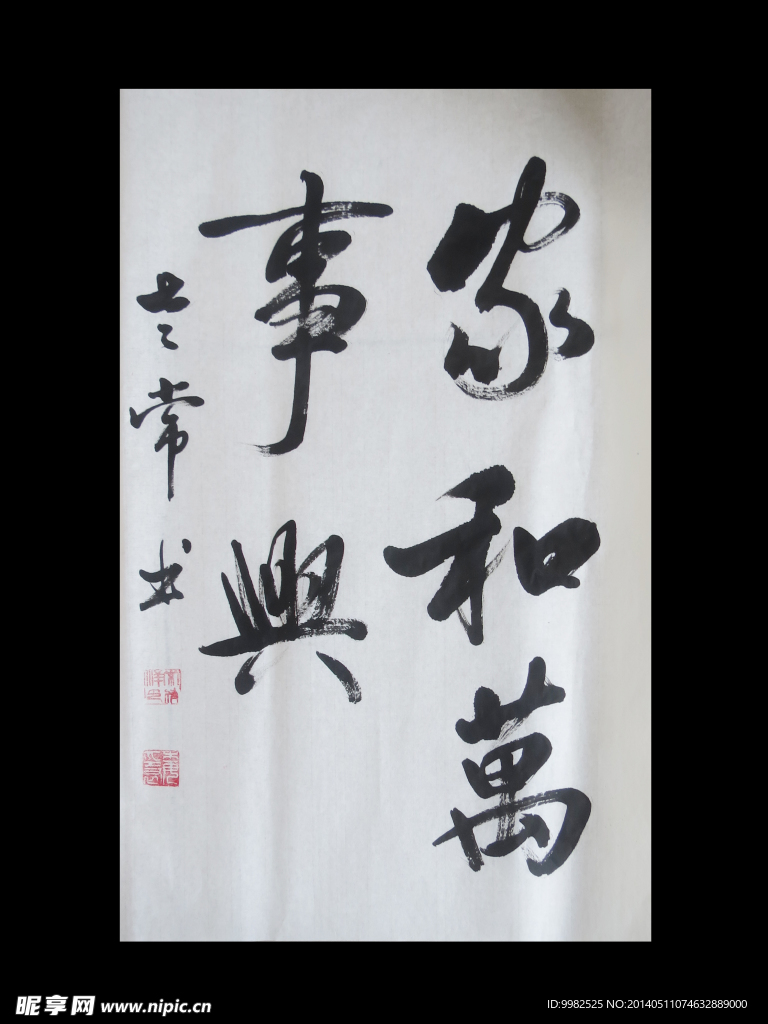 家和萬
事興
常书
昵享网 www.nipic.cn
ID:9982525 NO:20140511074632889000